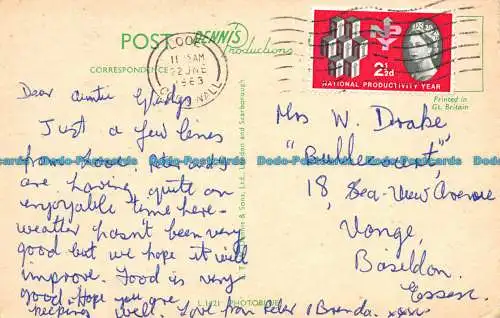 POST
DENNIS
Productions
CORRESPONDENCE
LOOE
11 15AM
22 JNE
1963
CORNWALL
2½d
NATIONAL PRODUCTIVITY YEAR
Printed in
Gt. Britain
Dear Auntie Gladys
Just a few lines
from Looe. Peter and I
are having quite an
enjoyable time here -
weather hasn't been very
good but we hope it will
improve. Food is very
good. Hope you are
keeping well. Love from Peter & Brenda. xxxx
Mrs W. Drake
18, Sea-View Avenue
Vange,
Basildon,
Essex.
& Sons, Ltd., London and Scarborough
L.1421 PHOTOBLUE
Postcards